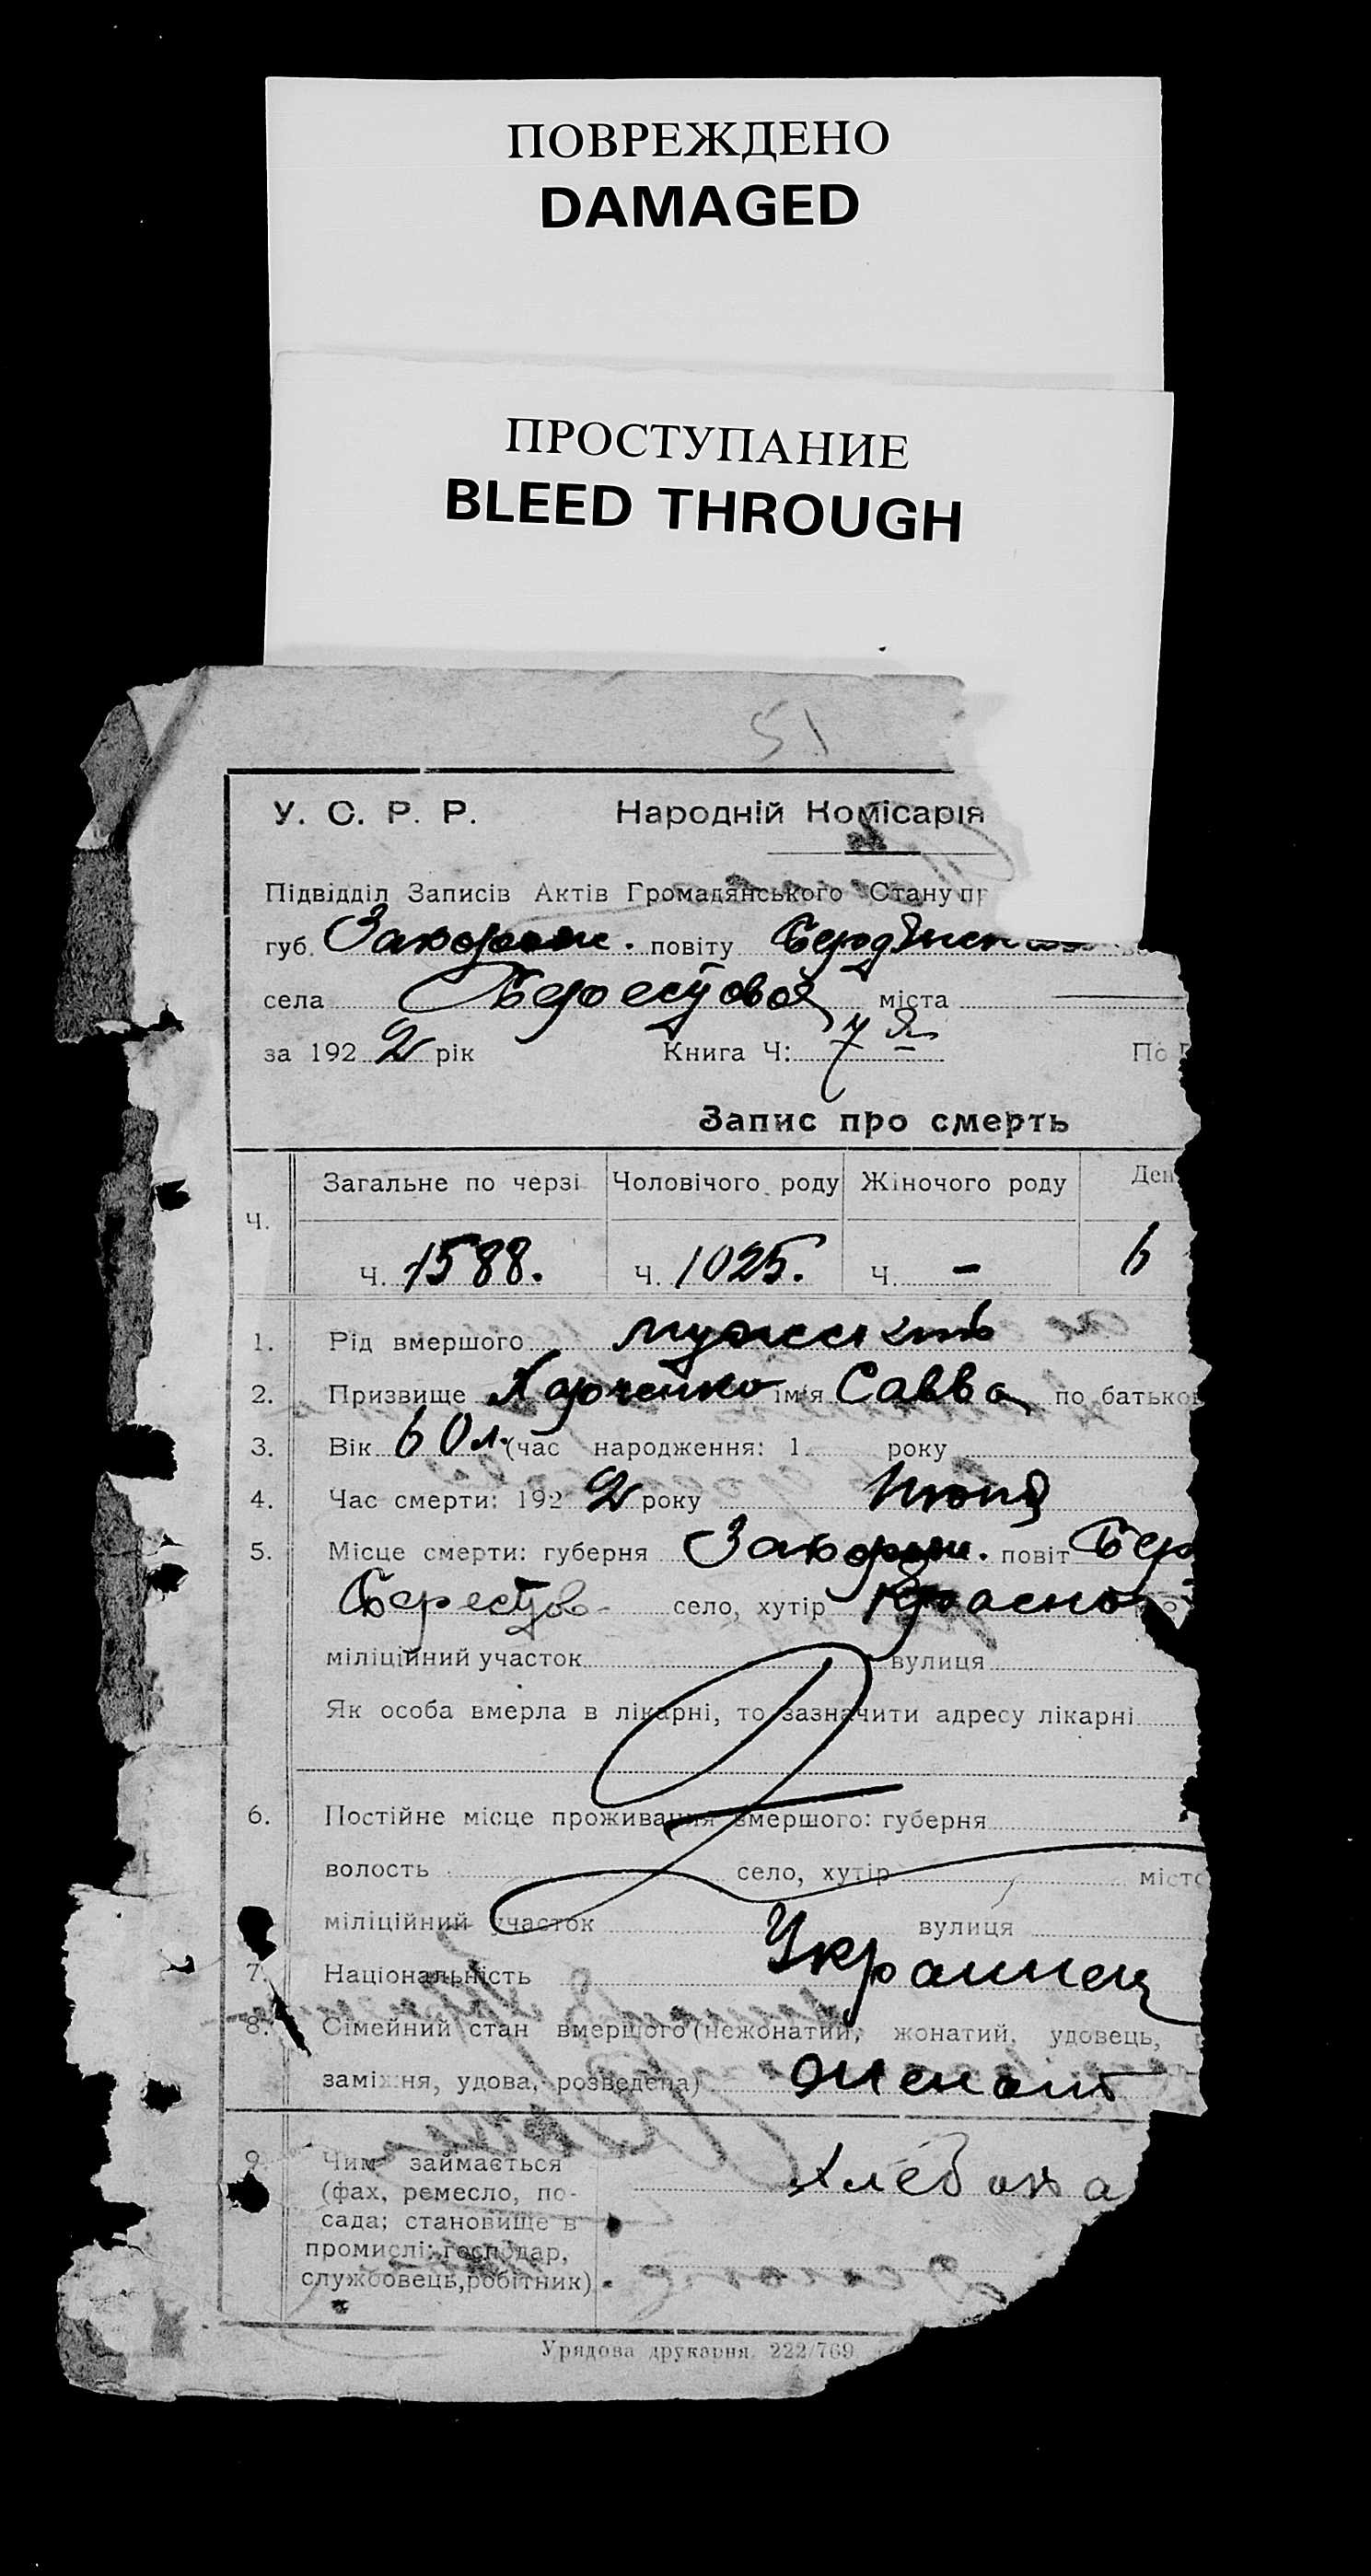 ПОВРЕЖДЕНО
DAMAGED
ПРОСТУПАНИЕ
BLEED THROUGH
51
У. С. Р. Р. Народній Комісарія
Підвідділ Записів Актів Громадянського Стану пр
губ. Запорож. повіту Бердянск
села Берестовой міста
за 192 2 рік Книга Ч: 7я По
Запис про смерть
Ч. Загальне по черзі Чоловічого роду Жіночого роду Ден
Ч. 1588. Ч. 1025. Ч. - 6
1. Рід вмершого мужск
2. Призвище Харченко ім'я Савва по батько
3. Вік 60 л. (час народження: 1 року
4. Час смерти: 192 2 року Июня
5. Місце смерти: губерня Запорож. повіт Бер
Берестов село, хутір
міліційний участок вулиця
Як особа вмерла в лікарні, то зазначити адресу лікарні
6. Постійне місце проживання вмершого: губерня
волость село, хутір місто
міліційний участок вулиця
7. Національність Украинец
8. Сімейний стан вмершого (нежонатий, жонатий, удовець,
заміжня, удова, розведена) Женат
9. Чим займається Хлебопа
(фах, ремесло, по-
сада; становище в
промислі: господар,
службовець, робітник).
Урядова друкарня. 222/769